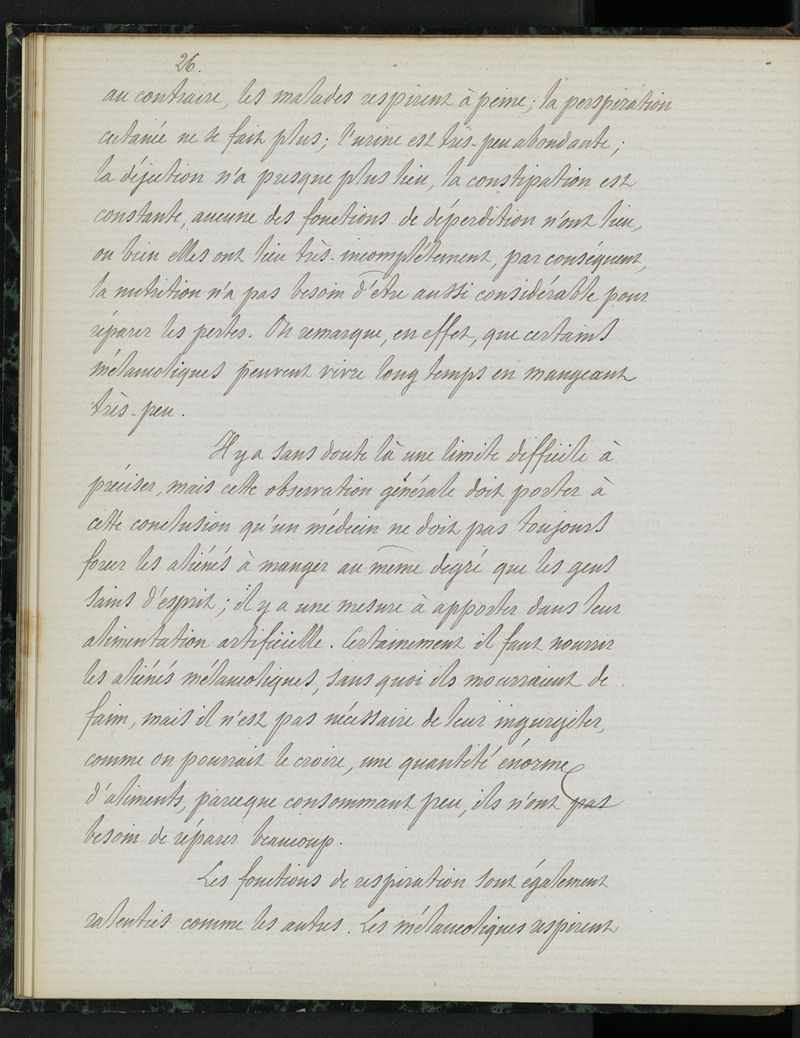 26.
au contraire, les malades respirent à peine; la perspiration
cutanée ne se fait plus; l'urine est très-peu abondante;
la déjection n'a presque plus lieu, la constipation est
constante, aucune des fonctions de déperdition n'ont lieu,
ou bien elles ont lieu très-incomplétement, par conséquent,
la nutrition n'a pas besoin d'être aussi considérable pour
réparer les pertes. On remarque, en effet, que certains
mélancoliques peuvent vivre long temps en mangeant
très-peu.
Il y a sans doute là une limite difficile à
préciser, mais cette observation générale doit porter à
cette conclusion qu'un médecin ne doit pas toujours
forcer les aliénés à manger au même degré que les gens
sains d'esprit; il y a une mesure à apporter dans leur
alimentation artificielle. Certainement il faut nourrir
les aliénés mélancoliques, sans quoi ils mourraient de
faim, mais il n'est pas nécessaire de leur ingurgiter,
comme on pourrait le croire, une quantité énorme
d'aliments, parceque consommant peu, ils n'ont pas
besoin de réparer beaucoup.
Les fonctions de respiration sont également
ralenties comme les autres. Les mélancoliques respirent